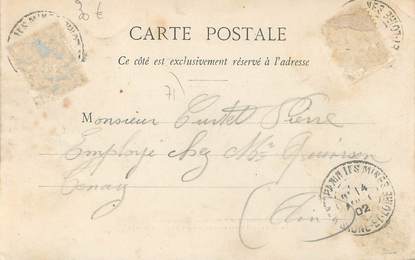 20 €
CARTE POSTALE
Ce côté est exclusivement réservé à l'adresse
71)
Monsieur Curtet Pierre
Employé chez Mr
Tenay
(Ain)
LES MINES
14
02
SAONE-ET-LOIRE